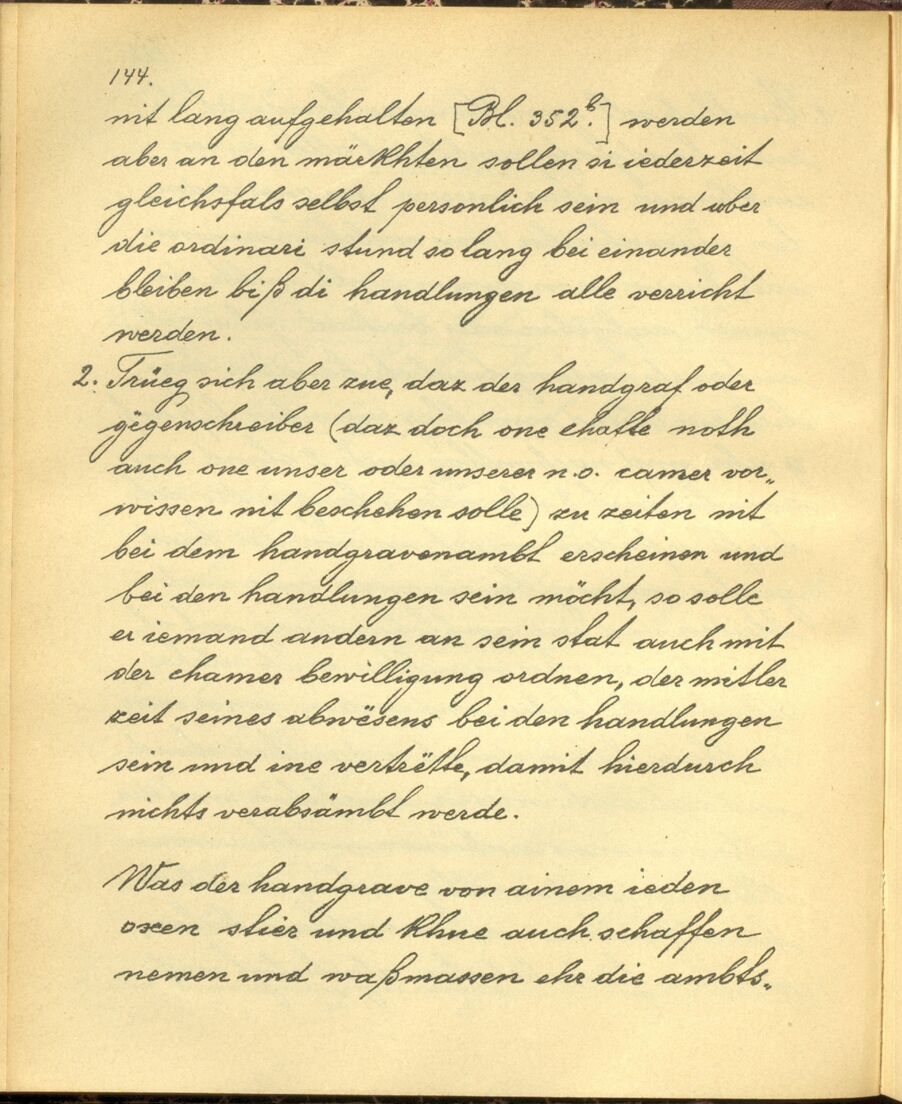 144.
nit lang aufgehalten [Bl. 352b.] werden
aber an den märkhten sollen si iederzeit
gleichsfals selbst personlich sein und uber
die ordinari stund so lang bei einander
bleiben biß di handlungen alle verricht
werden.
2. Trüeg sich aber zue, daz der handgraf oder
gegenschreiber (daz doch one ehafte noth
auch one unser oder unserer n.o. camer vor„
wissen nit beschehen solle) zu zeiten nit
bei dem handgravenambt erscheinen und
bei den handlungen sein möcht, so solle
er iemand andern an sein stat auch mit
der chamer bewilligung ordnen, der mitler
zeit seines abwësens bei den handlungen
sein und ine vertrëtte, damit hierdurch
nichts verabsämbt werde.
Was der handgrave von ainem ieden
oxen stier und khue auch schaffen
nemen und waßmassen ehr die ambts„